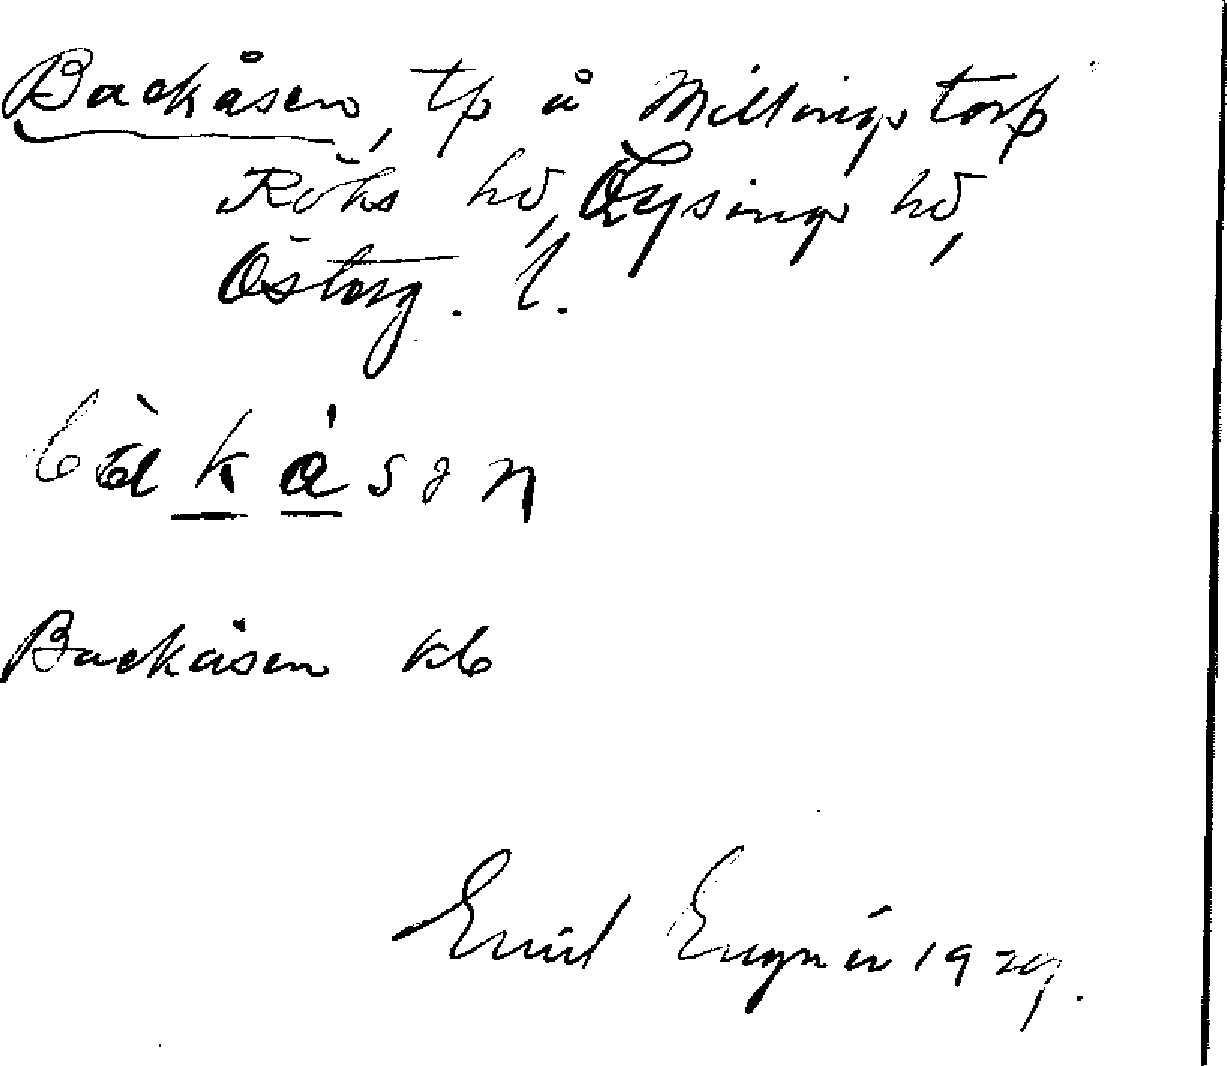 Backåsen, tp å Millingstorp
Röks hd, Lysings hd,
Österg. l.
bàkåsən
Backåsen kb
Emil Engnér 1929.